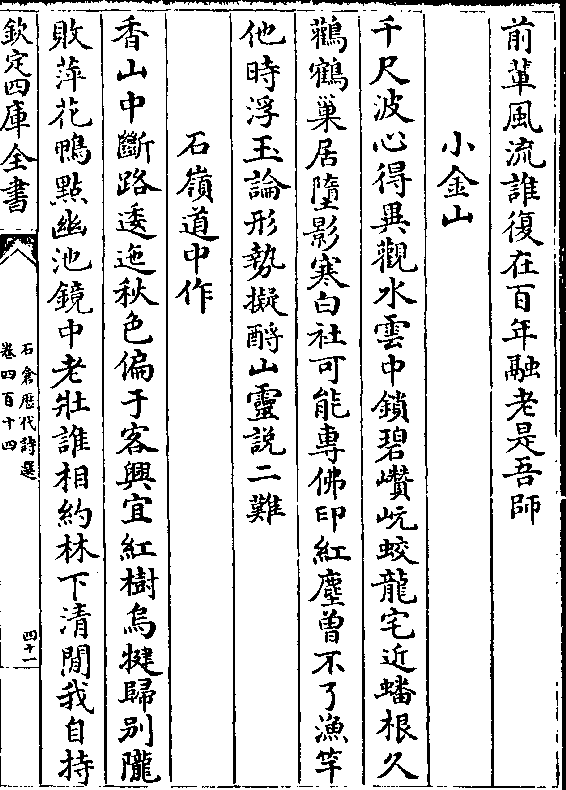 前輩風流誰復在百年融老是吾師
小金山
千尺波心得異觀水雲中鎖碧巑岏蛟龍宅近蟠根久
鸛鶴巢居墮影寒白社可能專佛印紅塵曽不了漁竿
他時浮玉論形勢擬酹山靈説二難
石嶺道中作
香山中斷路逶迤秋色偏于客興宜紅樹烏犍歸别隴
敗萍花鴨點幽池鏡中老壯誰相約林下清閒我自持
欽定四庫全書
石倉歴代詩選
卷四百十四
四十一